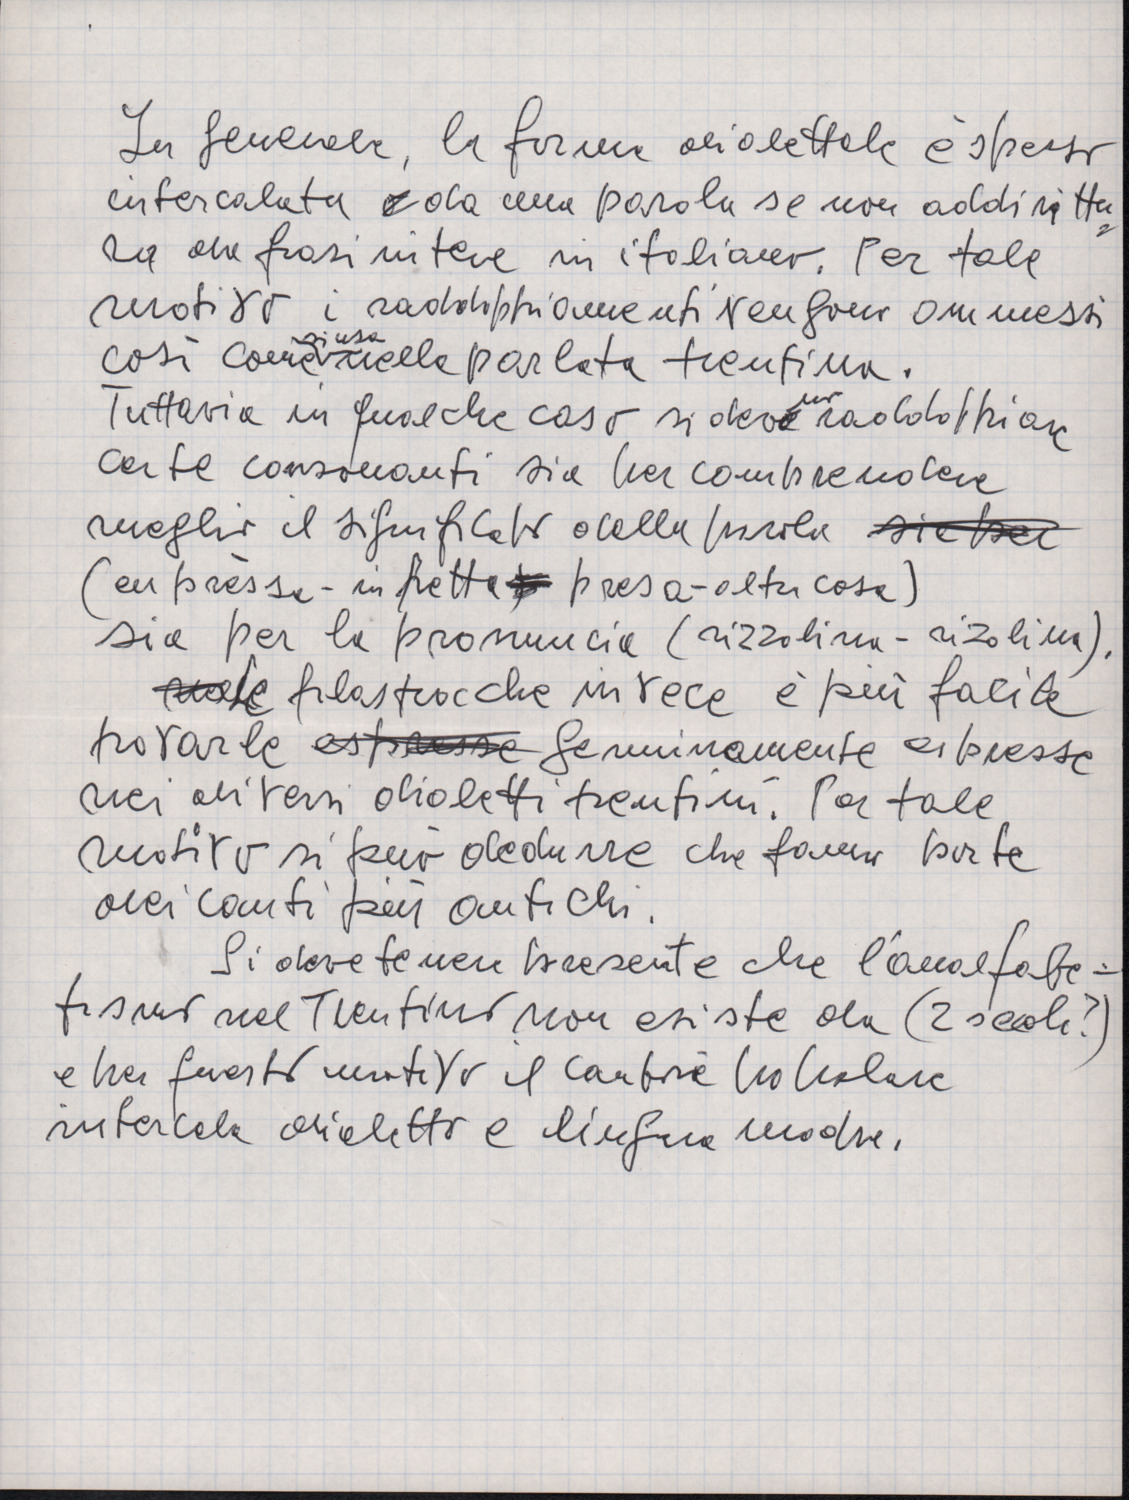 In generale, la forma dialettale è spesso
intercalata da una parola se non addirittu=
ra da frasi intere in italiano. Per tale
motivo i raddoppiamenti vengono ommessi
così come si usa nella parlata trentina.
Tuttavia in qualche caso si devono raddoppiare
certe consonanti sia per comprendere
meglio il significato della parola sia per
(en prèssa - in fretta presa - altra cosa)
sia per la pronuncia (rizzolina - rizolina).
le filastrocche invece è più facile
trovarle espresse genuinamente espresse
nei diversi dialetti trentini. Per tale
motivo si può dedurre che fanno parte
dei canti più antichi.
Si deve tenere presente che l'analfabe=
tismo nel Trentino non esiste da (2 secoli?)
e per questo motivo il cantore popolare
intercala dialetto e lingua madre.